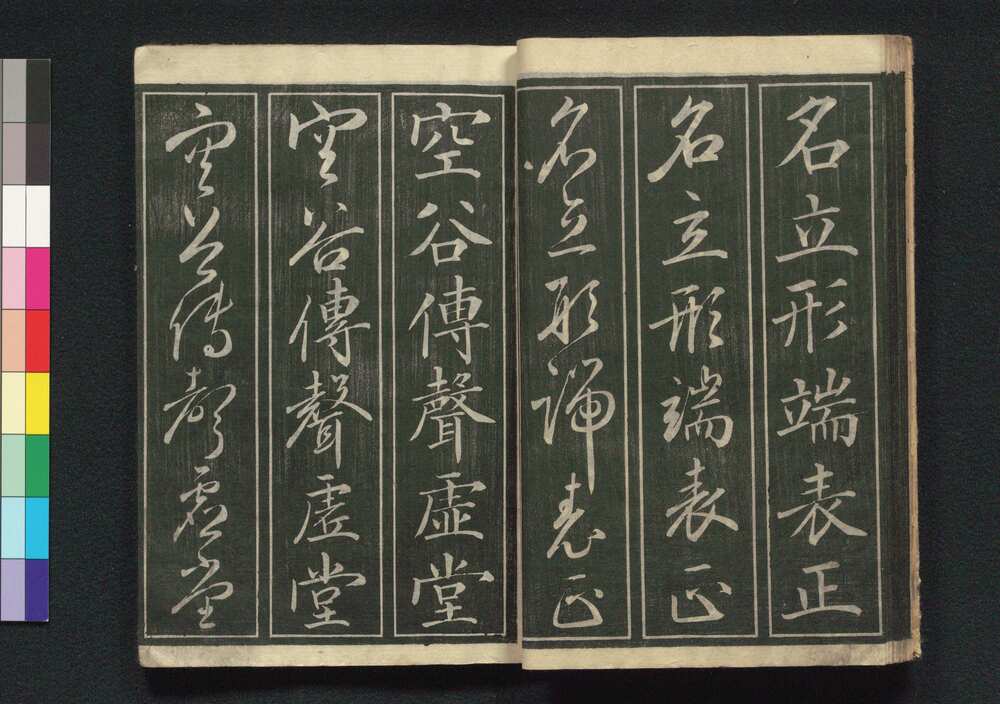 名立形端表正
名立形端表正
名立形端表正
空谷傳聲虛堂
空谷傳聲虛堂
空谷傳聲虛堂